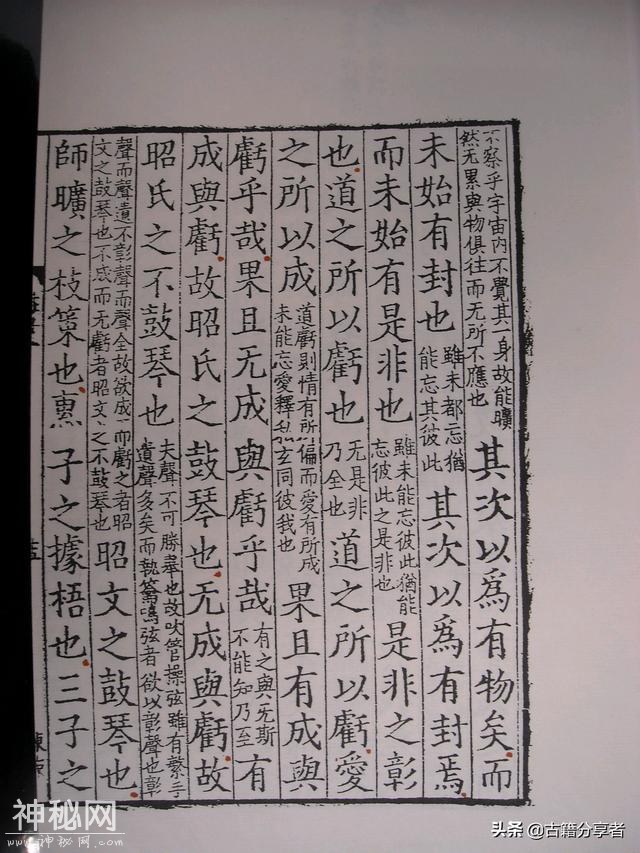 不察乎宇宙内不覺其一身故能曠然无累與物俱往而无所不應也其次以爲有物矣而
未始有封也雖未都忘猶能忘其彼此其次以爲有封焉
而未始有是非也雖未能忘彼此猶能忘彼此之是非也是非之彰
也道之所以虧也无是非乃全也道之所以虧愛
之所以成道虧則情有所偏而愛有所成未能忘愛釋私玄同彼我也果且有成與
虧乎哉果且无成與虧乎哉有之與无斯不能知乃至有
成與虧故昭氏之鼓琴也无成與虧故
昭氏之不鼓琴也夫聲不可勝舉也故吹管操弦雖有繁手遺聲多矣而執籥鳴弦者欲以彰聲也彰
聲而聲遺不彰聲而聲全故欲成而虧之者昭文之鼓琴也不成而无虧者昭文之不鼓琴也昭文之鼓琴也
師曠之枝策也惠子之據梧也三子之
神秘网
www.神秘网.com
头条 @古籍分享者